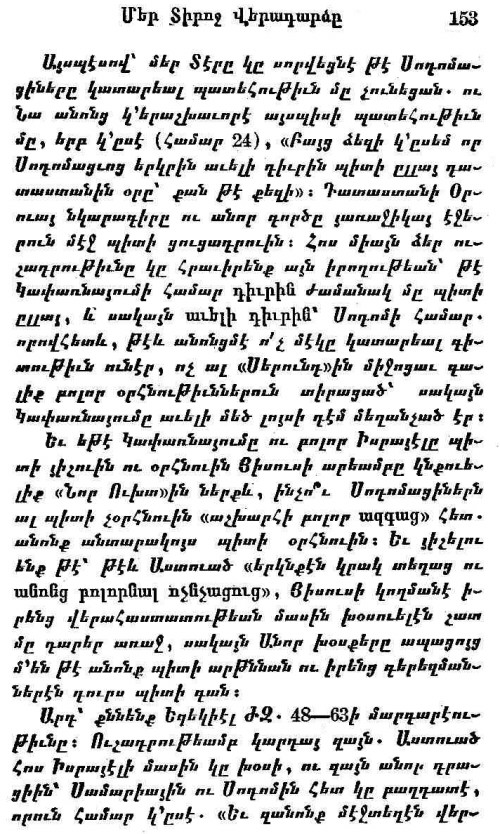 Մեր Տիրոջ Վերադարձը 153
Այսպէսով՝ մեր Տէրը կը սորվեցնէ թէ Սոդոմա-
ցիները կատարեալ պատեհութիւն մը չունեցան. ու
Նա անոնց կ՚երաշխաւորէ այսպիսի պատեհութիւն
մը, երբ կ՚ըսէ (համար 24), «Բայց ձեզի կ՚ըսեմ որ
Սոդոմացւոց երկրին աւելի դիւրին պիտի ըլլայ դա-
տաստանին օրը՝ քան թէ քեզի»։ Դատաստանի Օր-
ուայ նկարագիրը ու անոր գործը յառաջիկայ էջե-
րուն մէջ պիտի ցուցադրուին։ Հոս միայն ձեր ու-
շադրութիւնը կը հրաւիրենք այն իրողութեան՝ թէ
Կափառնայումի համար դիւրին ժամանակ մը պիտի
ըլլայ, և սակայն աւելի դիւրին՝ Սոդոմի համար.
որովհետև, թէև անոնցմէ ո՛չ մէկը կատարեալ գի-
տութիւն ունէր, ոչ ալ «Սերունդ»ին միջոցաւ գա-
լիք բոլոր օրհնութիւններուն տիրացած՝ սակայն
Կափառնայումը աւելի մեծ լոյսի դէմ մեղանչած էր։
Եւ եթէ Կափառնայումը ու բոլոր Իսրայէլը պի-
տի յիշուին ու օրհնուին Յիսուսի արեամբը կնքուե-
լիք «Նոր Ուխտ»ին ներքև, ինչո՞ւ Սոդոմացիներն
ալ պիտի չօրհնուին «աշխարհի բոլոր ազգաց» հետ.
անոնք անտարակոյս պիտի օրհնուին։ Եւ յիշելու
ենք թէ՝ թէև Աստուած «երկնքէն կրակ տեղաց ու
անոնց բոլորնալ ոչնչացուց», Յիսուսի կողմանէ ի-
րենց վերահաստատութեան մասին խօսուելէն շատ
մը դարեր առաջ, սակայն Անոր խօսքերը ապացոյց
մ՚են թէ անոնք պիտի արթննան ու իրենց գերեզման-
ներէն դուրս պիտի գան։
Արդ՝ քննենք Եզեկիէլ ԺԶ. 48—63ի մարգարէու-
թիւնը։ Ուշադրութեամբ կարդայ զայն. Աստուած
հոս Իսրայէլի մասին կը խօսի, ու զայն անոր դրա-
ցիին՝ Սամարիային ու Սոդոմին հետ կը բաղդատէ,
որուն համար կ՚ըսէ. «Եւ զանոնք մէջտեղէն վեր-